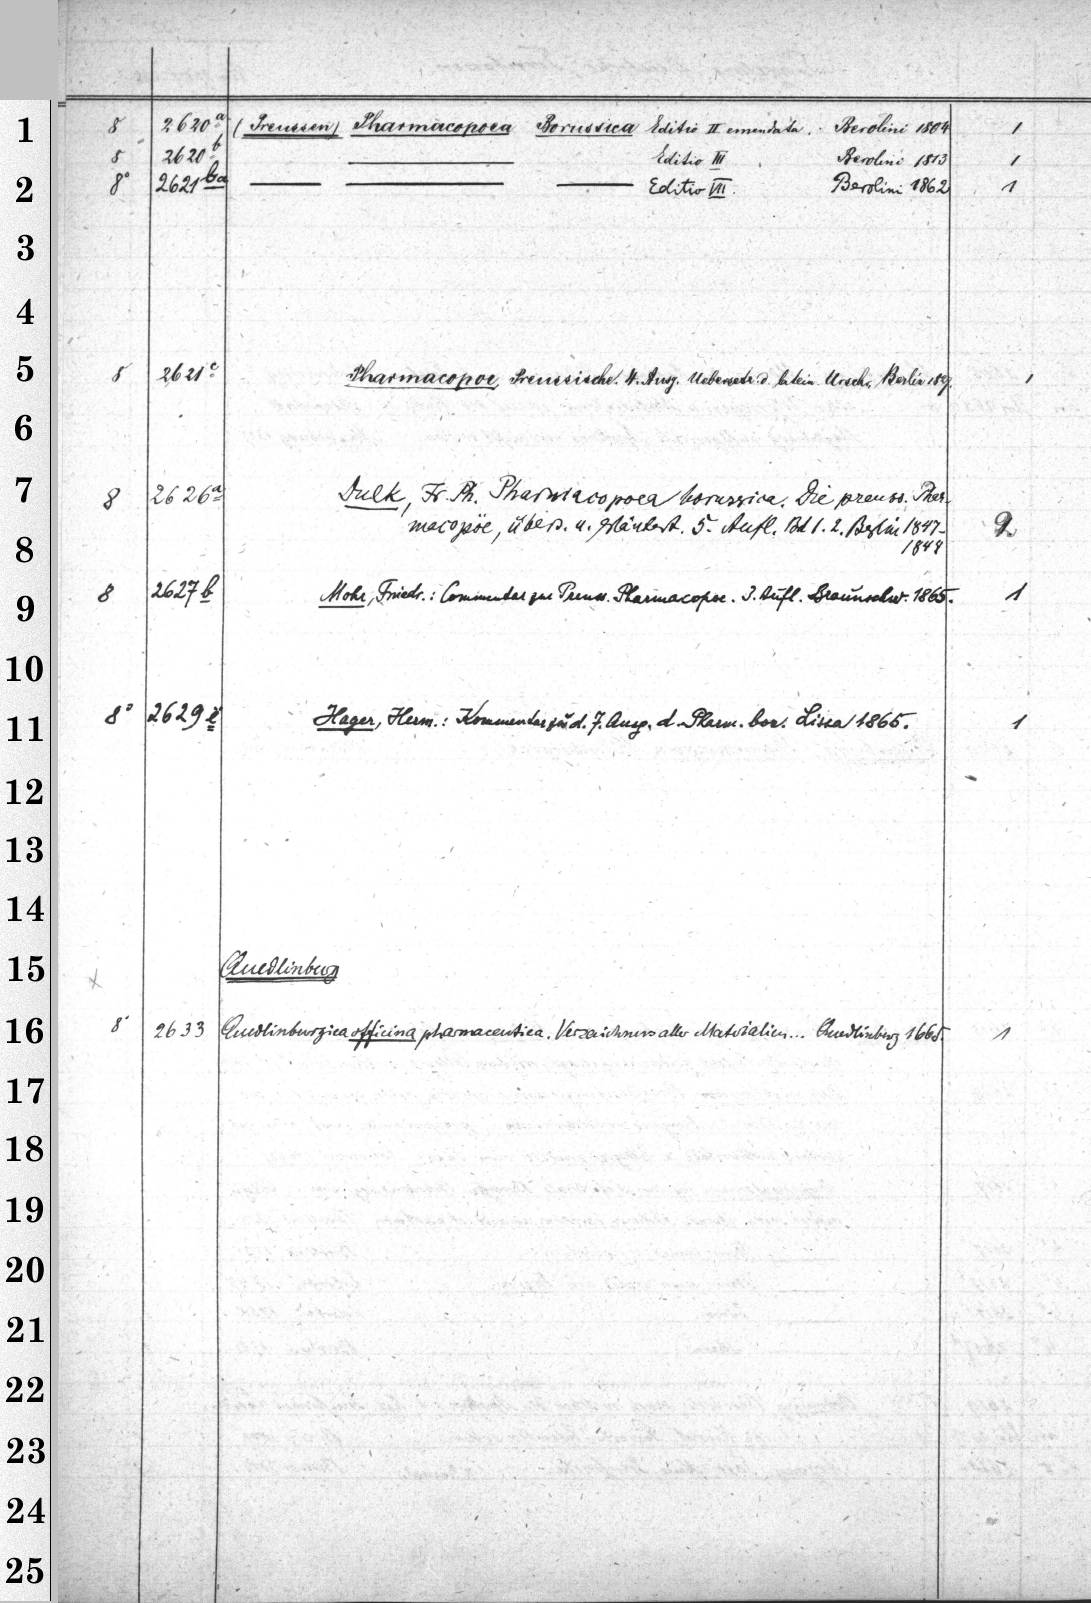 1 8 2620a (Preussen) Pharmacopoea Borussica Editio II emendata. Berolini 1804 1
8 2620b Editio III Berolini 1813 1
2 8° 2621ba Editio VII. Berolini 1862 1
3
4
5 8 2621c Pharmacopoe, Preussische. 4. Ausg. Uebersetz. d. latein. Urschr. Berlin 1
6
7 8 2626a Dulk, Fr. Ph. Pharmacopoea borussica. Die preuss. Phar-
macopöe, übers. u. erläutert. 5. Aufl. Bd 1. 2. Berlin 1847-
8 1848
9 8 2627b Mohr, Friedr.: Commentar zur Preuss. Pharmacopoe. 3. Aufl. Braunschw. 1865. 1
10
11 8° 2629 Hager, Herm.: Kommentar zu d. 7. Ausg. d. Pharm. bor. Lissa 1865. 1
12
13
14
15 Quedlinburg
16 8° 2633 Quedlinburgica officina pharmaceutica. Verzeichnuss aller Materialien... Quedlinburg 1665. 1
17
18
19
20
21
22
23
24
25